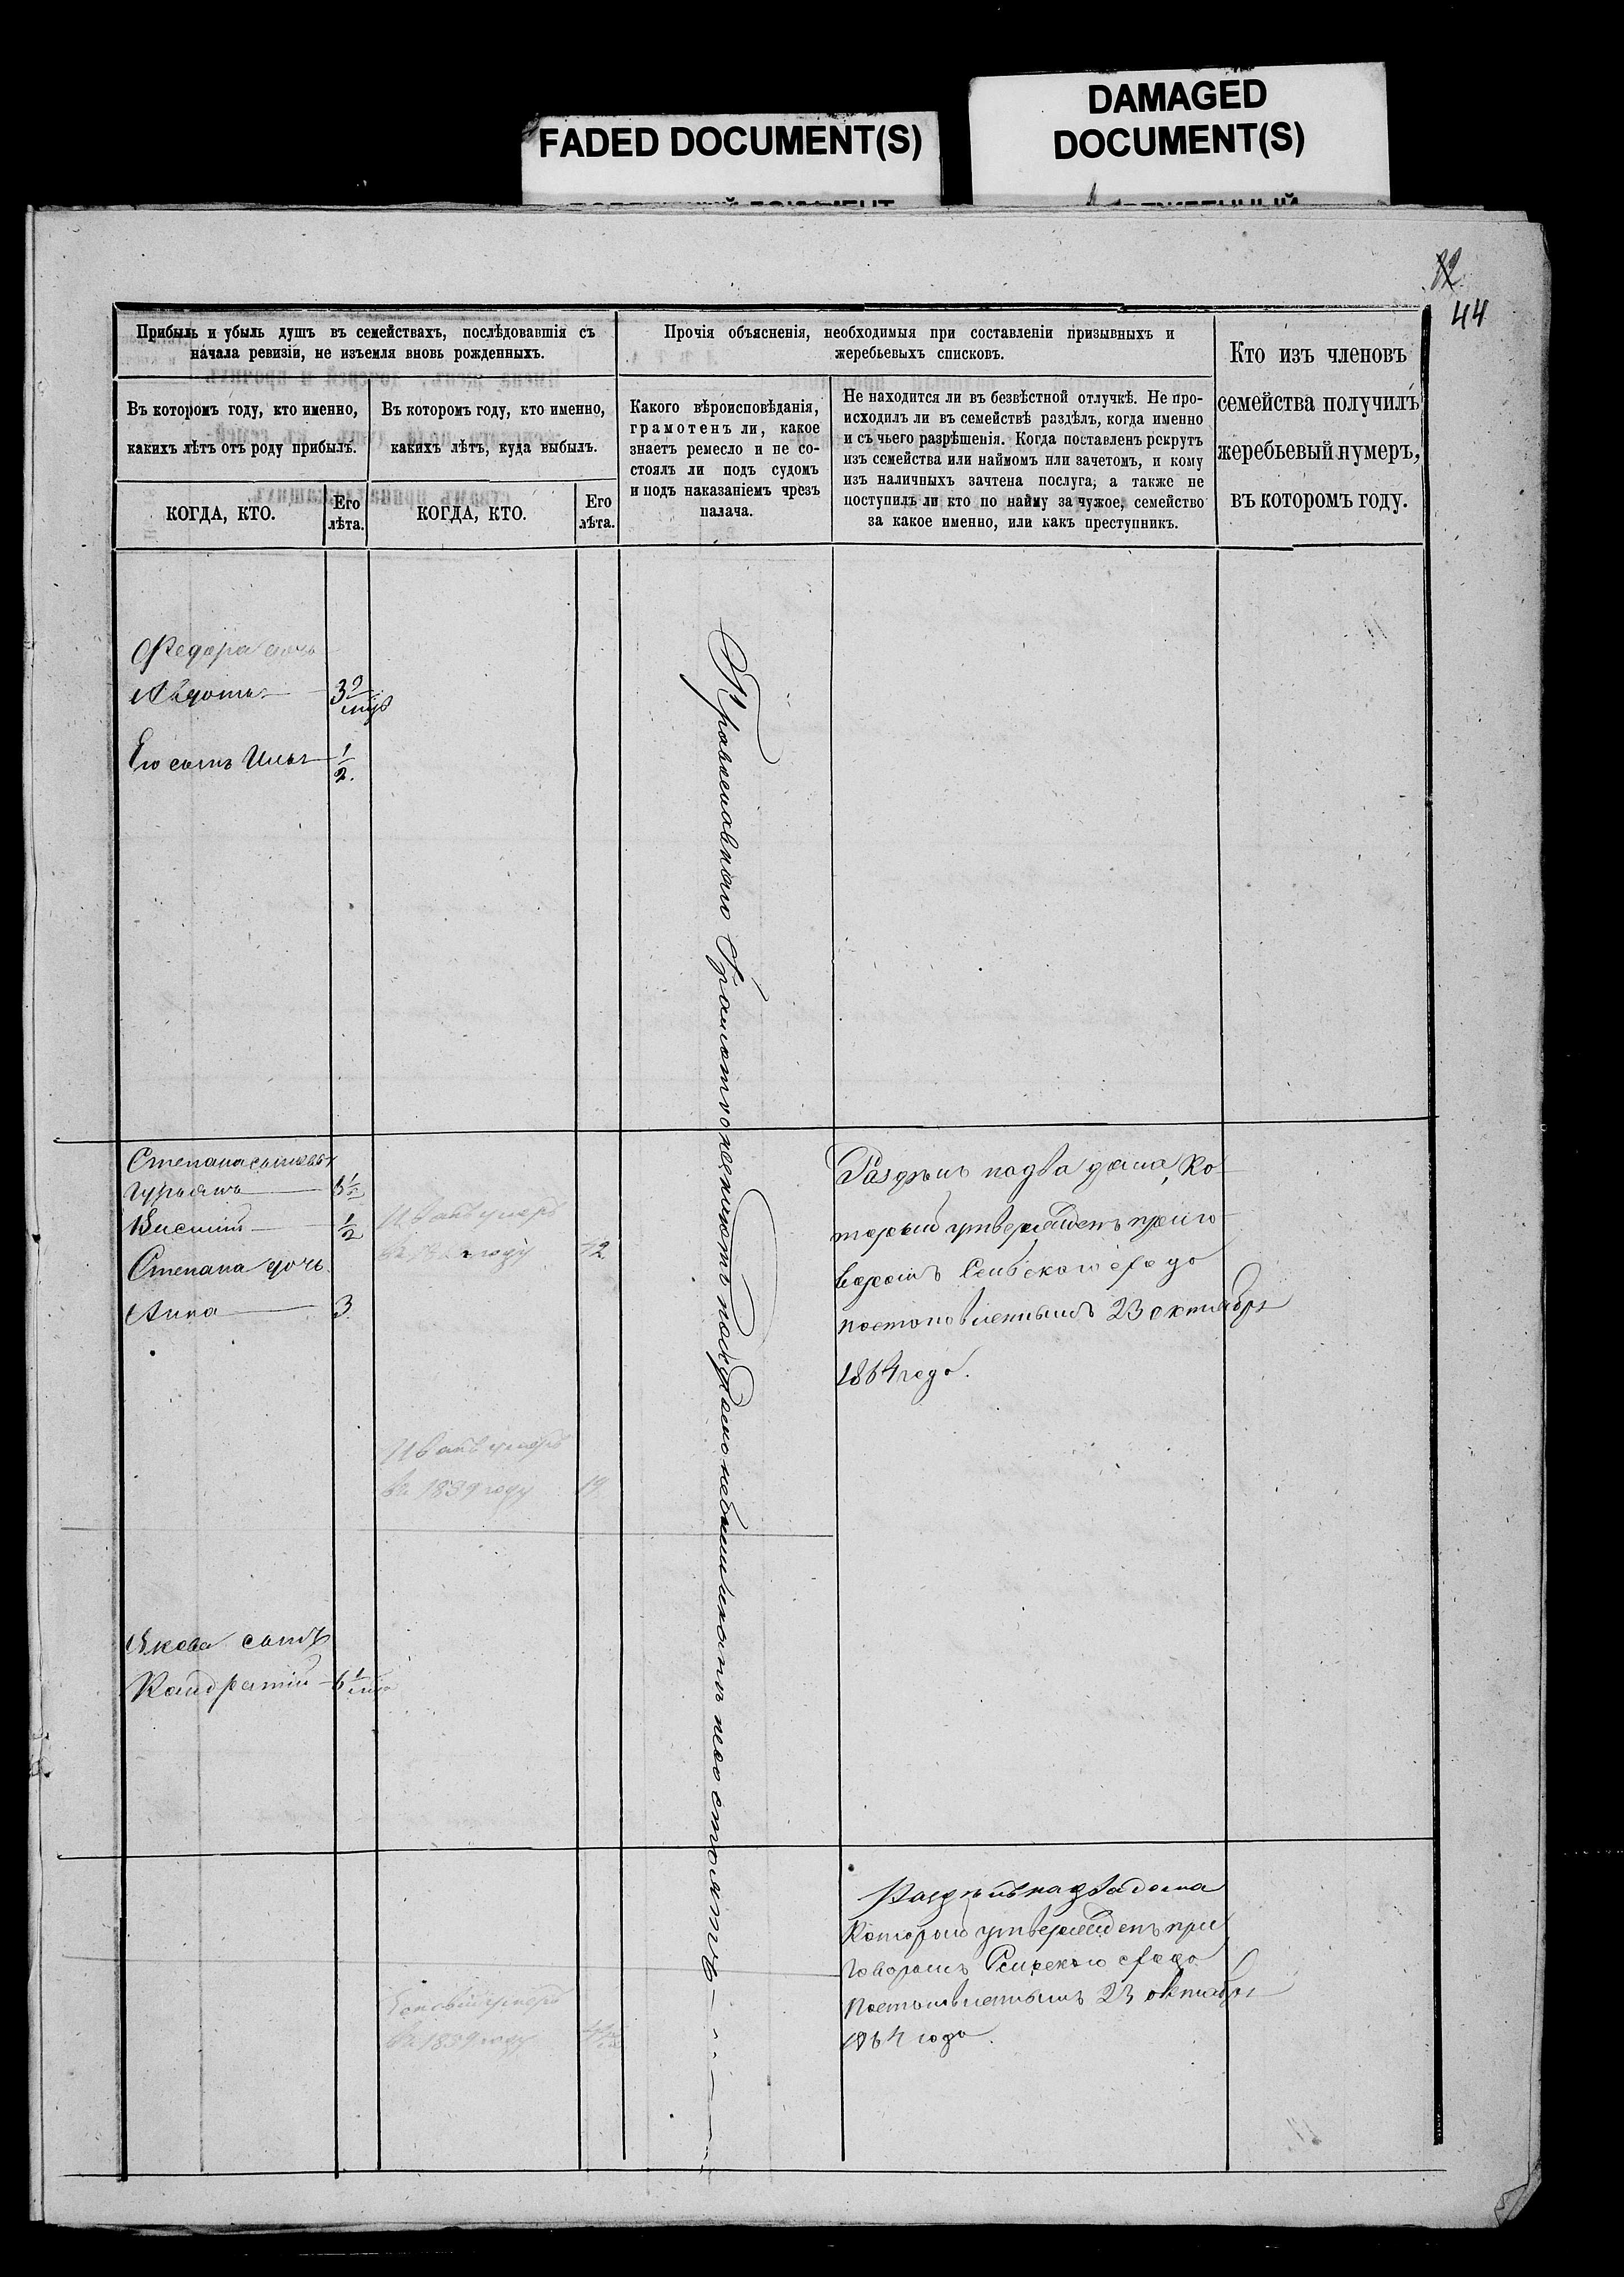 FADED DOCUMENT(S)
DAMAGED
DOCUMENT(S)
12
44
Прибыль и убыль душъ въ семействахъ, послѣдовавшія съ
начала ревизіи, не изъемля вновь рожденныхъ.
Прочія объясненія, необходимыя при составленіи призывныхъ и
жеребьевыхъ списковъ.
Кто изъ членовъ
семейства получилъ
жеребьевый нумеръ,
въ которомъ году.
Въ которомъ году, кто именно,
какихъ лѣтъ отъ роду прибылъ.
Въ которомъ году, кто именно,
какихъ лѣтъ, куда выбылъ.
Какого вѣроисповѣданія,
грамотенъ ли, какое
знаетъ ремесло и не со-
стоялъ ли подъ судомъ
и подъ наказаніемъ чрезъ
палача.
Не находится ли въ безвѣстной отлучкѣ. Не про-
исходилъ ли въ семействѣ раздѣлъ, когда именно
и съ чьего разрѣшенія. Когда поставленъ рекрутъ
изъ семейства или наймомъ или зачетомъ, и кому
изъ наличныхъ зачтена послуга, а также не
поступилъ ли кто по найму за чужое, семейство
за какое именно, или какъ преступникъ.
КОГДА, КТО.
Его
лѣта.
КОГДА, КТО.
Его
лѣта.
Федора дочь
Авдотья
Его сынъ Илья 1/2
Православнаго Грамотѣ незнаютъ подъ судомъ небыли и нынѣ несостоятъ
Степана сыновья
Гурьянъ 3 1/2
1/2
Степана дочь
Анна 3
Иванъ умеръ
году
Раздѣлъ на два дома, ко
торый утвержденъ приго
воромъ схода
постановленнымъ 23 октября
1864 года.
Иванъ умеръ
въ 1839 году 19
Якова сынъ
Кандратій
Раздѣлъ на два дома
Которой утвержденъ при
говоромъ схода
постановленнымъ 23 октября
1864 года.
умеръ
въ 1839 году